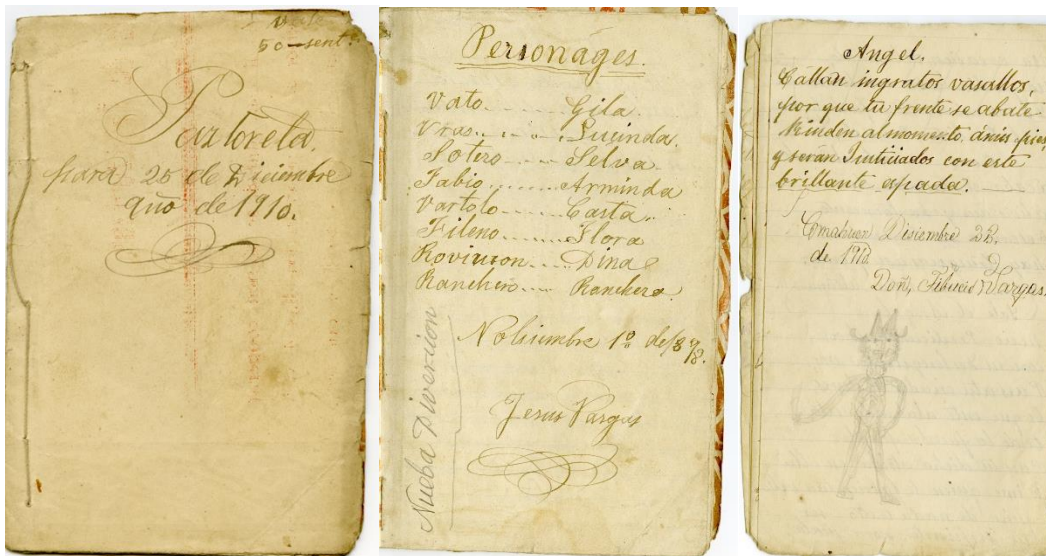 Vale
50 sent.
Pastoreta.
para 25 de Diciembre
año de 1910.
Personages.
Vato Gila.
Vras. Lucinda.
Sotero Selva
Fabio Arminda
Vartolo Casta.
Fileno Flora
Rovinson Dina
Ranchero Ranchera.
Nobiembre 1º de 1898.
Jesus Vargas
Nueba Divercion
Angel.
Callan ingratos vasallos,
por que tu frente se abate
Rinden al momento á mis pies,
y serán Justiciados con este
brillante aspada.
Disiembre 22.
de 1910
Vargas.